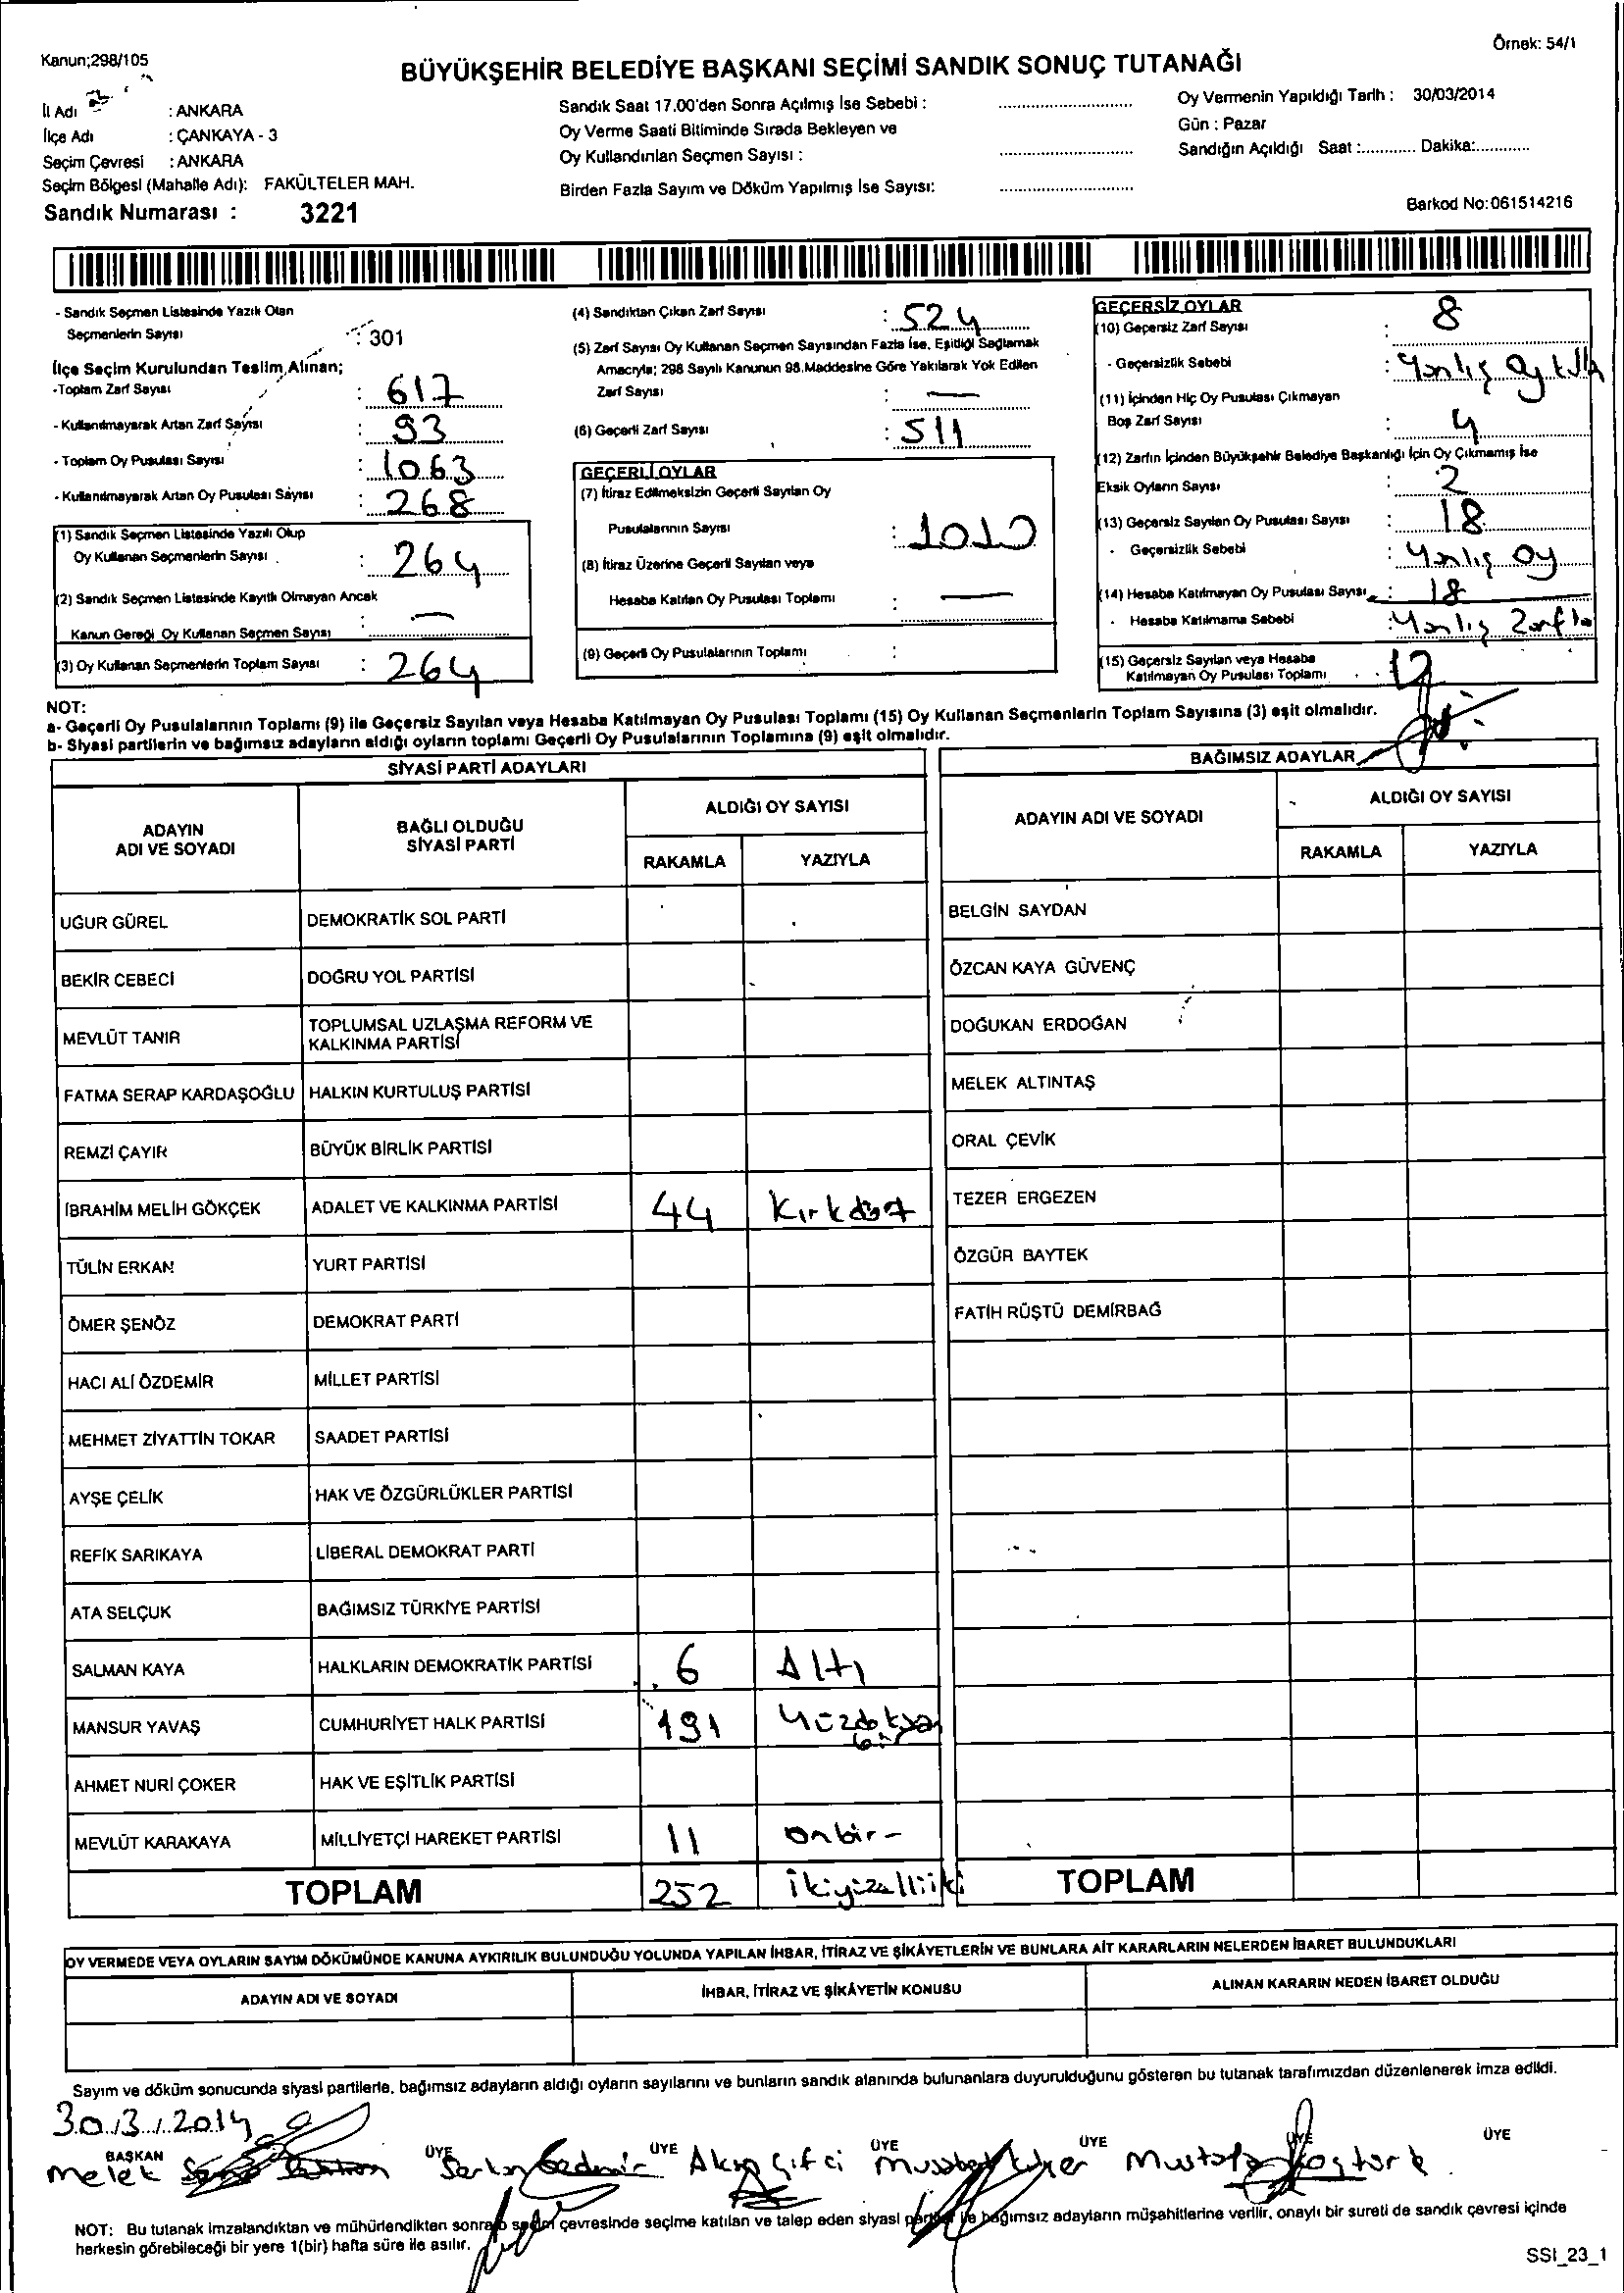 Kanun;298/105
Örnek: 54/1
BÜYÜKŞEHİR BELEDİYE BAŞKANI SEÇİMİ SANDIK SONUÇ TUTANAĞI
İl Adı : ANKARA
İlçe Adı : ÇANKAYA - 3
Seçim Çevresi : ANKARA
Seçim Bölgesi (Mahalle Adı): FAKÜLTELER MAH.
Sandık Numarası : 3221
Sandık Saat 17.00'den Sonra Açılmış İse Sebebi :
Oy Verme Saati Bitiminde Sırada Bekleyen ve
Oy Kullandırılan Seçmen Sayısı :
Birden Fazla Sayım ve Döküm Yapılmış İse Sayısı:
Oy Vermenin Yapıldığı Tarih : 30/03/2014
Gün : Pazar
Sandığın Açıldığı Saat :............ Dakika:............
Barkod No:061514216
- Sandık Seçmen Listesinde Yazılı Olan
Seçmenlerin Sayısı : 301
İlçe Seçim Kurulundan Teslim Alınan;
-Toplam Zarf Sayısı : 617
- Kullanılmayarak Artan Zarf Sayısı : 93
- Toplam Oy Pusulası Sayısı : 1063
- Kullanılmayarak Artan Oy Pusulası Sayısı : 268
(1) Sandık Seçmen Listesinde Yazılı Olup
Oy Kullanan Seçmenlerin Sayısı : 264
(2) Sandık Seçmen Listesinde Kayıtlı Olmayan Ancak
Kanun Gereği Oy Kullanan Seçmen Sayısı : —
(3) Oy Kullanan Seçmenlerin Toplam Sayısı : 264
(4) Sandıktan Çıkan Zarf Sayısı : 524
(5) Zarf Sayısı Oy Kullanan Seçmen Sayısından Fazla İse, Eşitliği Sağlamak
Amacıyla; 298 Sayılı Kanunun 98.Maddesine Göre Yakılarak Yok Edilen
Zarf Sayısı : —
(6) Geçerli Zarf Sayısı : 511
GEÇERLİ OYLAR
(7) İtiraz Edilmeksizin Geçerli Sayılan Oy
Pusulalarının Sayısı : 1010
(8) İtiraz Üzerine Geçerli Sayılan veya
Hesaba Katılan Oy Pusulası Toplamı : —
(9) Geçerli Oy Pusulalarının Toplamı :
GEÇERSİZ OYLAR
(10) Geçersiz Zarf Sayısı : 8
- Geçersizlik Sebebi : Yanlış Oy
(11) İçinden Hiç Oy Pusulası Çıkmayan
Boş Zarf Sayısı : 4
(12) Zarfın İçinden Büyükşehir Belediye Başkanlığı İçin Oy Çıkmamış İse
Eksik Oyların Sayısı : 2
(13) Geçersiz Sayılan Oy Pusulası Sayısı : 18
- Geçersizlik Sebebi : Yanlış oy
(14) Hesaba Katılmayan Oy Pusulası Sayısı : 18
- Hesaba Katılmama Sebebi : Yanlış Zarfla
(15) Geçersiz Sayılan veya Hesaba
Katılmayan Oy Pusulası Toplamı : 12
NOT:
a- Geçerli Oy Pusulalarının Toplamı (9) ile Geçersiz Sayılan veya Hesaba Katılmayan Oy Pusulası Toplamı (15) Oy Kullanan Seçmenlerin Toplam Sayısına (3) eşit olmalıdır.
b- Siyasi partilerin ve bağımsız adayların aldığı oyların toplamı Geçerli Oy Pusulalarının Toplamına (9) eşit olmalıdır.
SİYASİ PARTİ ADAYLARI
ADAYIN ADI VE SOYADI
BAĞLI OLDUĞU SİYASİ PARTİ
ALDIĞI OY SAYISI
RAKAMLA YAZIYLA
UĞUR GÜREL DEMOKRATİK SOL PARTİ
BEKİR CEBECİ DOĞRU YOL PARTİSİ
MEVLÜT TANIR TOPLUMSAL UZLAŞMA REFORM VE KALKINMA PARTİSİ
FATMA SERAP KARDAŞOĞLU HALKIN KURTULUŞ PARTİSİ
REMZİ ÇAYIR BÜYÜK BİRLİK PARTİSİ
İBRAHİM MELİH GÖKÇEK ADALET VE KALKINMA PARTİSİ 44 Kırkdört
TÜLİN ERKAN YURT PARTİSİ
ÖMER ŞENÖZ DEMOKRAT PARTİ
HACI ALİ ÖZDEMİR MİLLET PARTİSİ
MEHMET ZİYATTİN TOKAR SAADET PARTİSİ
AYŞE ÇELİK HAK VE ÖZGÜRLÜKLER PARTİSİ
REFİK SARIKAYA LİBERAL DEMOKRAT PARTİ
ATA SELÇUK BAĞIMSIZ TÜRKİYE PARTİSİ
SALMAN KAYA HALKLARIN DEMOKRATİK PARTİSİ 6 Altı
MANSUR YAVAŞ CUMHURİYET HALK PARTİSİ 191
AHMET NURİ ÇOKER HAK VE EŞİTLİK PARTİSİ
MEVLÜT KARAKAYA MİLLİYETÇİ HAREKET PARTİSİ 11 onbir-
TOPLAM 252 ikiyüzelliiki
BAĞIMSIZ ADAYLAR
ADAYIN ADI VE SOYADI
ALDIĞI OY SAYISI
RAKAMLA YAZIYLA
BELGİN SAYDAN
ÖZCAN KAYA GÜVENÇ
DOĞUKAN ERDOĞAN
MELEK ALTINTAŞ
ORAL ÇEVİK
TEZER ERGEZEN
ÖZGÜR BAYTEK
FATİH RÜŞTÜ DEMİRBAĞ
TOPLAM
OY VERMEDE VEYA OYLARIN SAYIM DÖKÜMÜNDE KANUNA AYKIRILIK BULUNDUĞU YOLUNDA YAPILAN İHBAR, İTİRAZ VE ŞİKÂYETLERİN VE BUNLARA AİT KARARLARIN NELERDEN İBARET BULUNDUKLARI
ADAYIN ADI VE SOYADI İHBAR, İTİRAZ VE ŞİKÂYETİN KONUSU ALINAN KARARIN NEDEN İBARET OLDUĞU
Sayım ve döküm sonucunda siyasi partilerle, bağımsız adayların aldığı oyların sayılarını ve bunların sandık alanında bulunanlara duyurulduğunu gösteren bu tutanak tarafımızdan düzenlenerek imza edildi.
30/3/2014
BAŞKAN ÜYE ÜYE ÜYE ÜYE ÜYE ÜYE
Melek Mustafa
NOT: Bu tutanak imzalandıktan ve mühürlendikten sonra seçim çevresinde seçime katılan ve talep eden siyasi partiler ile bağımsız adayların müşahitlerine verilir, onaylı bir sureti de sandık çevresi içinde
herkesin görebileceği bir yere 1(bir) hafta süre ile asılır.
SSI_23_1